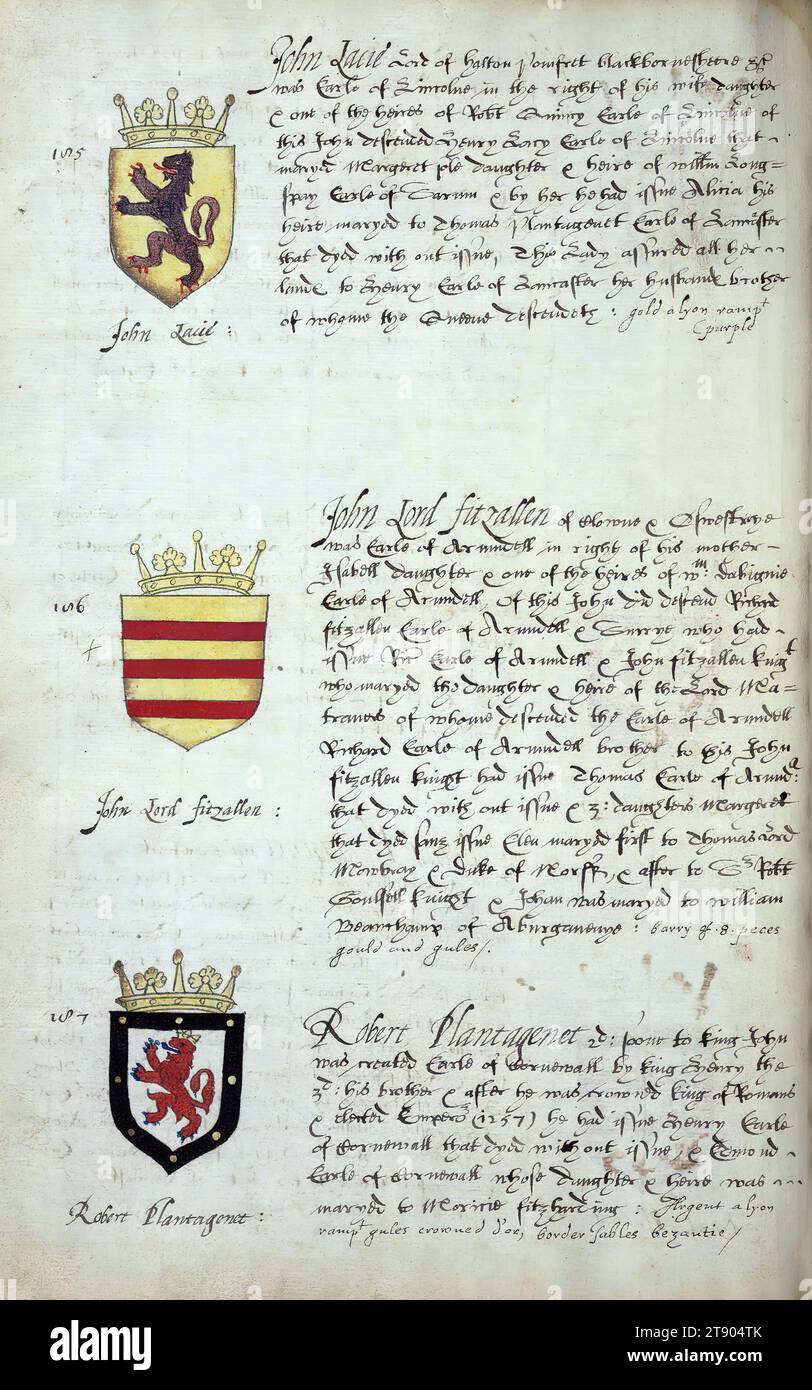 John Lacie Lord of Halton Pomfret blackbornesheere &c
was Earle of Lincolne in the right of his wife daughter
& one of the heires of Robt Quincy Earle of Lincolne of
this John descended Henry Lacy Earle of Lincolne that
maryed Margeret daughter & heire of willm Long-
spay Earle of Sarum & by her he had issue Alicia his
heire maryed to Thomas Plantagenett Earle of Lancaster
that dyed with out issue, This Lady assured all her
lande to Henry Earle of Lancaster her husbande brother
of whome the Queene descendeth : gold a lyon rampt
purple
185
John Lacie :
John Lord fitzallen of Clowne & Oswestrye
was Earle of Arundell in right of his mother
Isabell daughter & one of the heires of wm. Dabignie
Earle of Arundell, Of this John did descend Richard
fitzallen Earle of Arundell & Surrye who had
issue Ric Earle of Arundell & John fitzallen knigt
who maryed the daughter & heire of the Lord Ma-
travers of whome descended the Earle of Arundell
Richard Earle of Arundell brother to this John
fitzallen knight had issue Thomas Earle of Arund
that dyed with out issue & 3: daughters Margeret
that dyed sanz issue Elen maryed first to Thomas Lord
Mowbray & Duke of Norff, & after to Sr Robt
Goulsell knight & Johan was maryed to william
Beauchamp of Aburganenye : barry of .8. peces
gould and gules /.
186
+
John Lord fitzallen :
Robert Plantagenet 2d: sonne to king John
was created Earle of Cornewall by king Henry the
3d: his brother & after he was crowned king of Romans
& elected Emperor (1257) he had issue Henry Earle
of Cornewall that dyed with out issue, & Edmond
Earle of Cornewall whose daughter & heire was
maryed to Morrice fitzharding : Argent a lyon
rampt gules crowned d'or, border sables bezantie /
187
Robert Plantagenet :
alamy
Image ID: 2T904TK
www.alamy.com